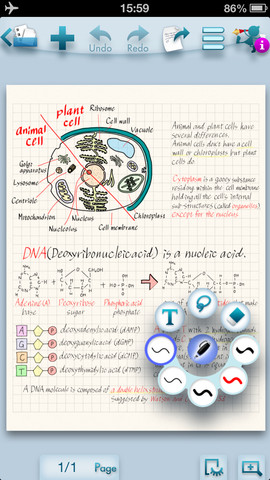 15:59
86%
Undo
Redo
plant cell
animal cell
Ribosome
Cell wall
Vacuole
Golgi apparatus
Lysosome
Centriole
Mitochondrion
Nucleus
Nucleolus
Cell membrane
Chloroplast
Animal and plant cells have
several differences.
Animal cells don't have a cell
wall or chloroplasts but plant
cells do.
Cytoplasm is a gooey substance
residing within the cell membrane
holding all the cell's internal
sub-structures (called organelles)
except for the nucleus.
DNA(Deoxyribonucleic acid) is a nucleic acid.
Adenine(A) base
Deoxyribose sugar
Phosphoric acid phosphate
A deoxyadenylic acid (dAMP)
G deoxyguanylic acid (dGMP)
C deoxycytidylic acid (dCMP)
T deoxythymidylic acid (dTMP)
T
A DNA molecule is composed of a double helix
suggested by Watson and
1/1 Page